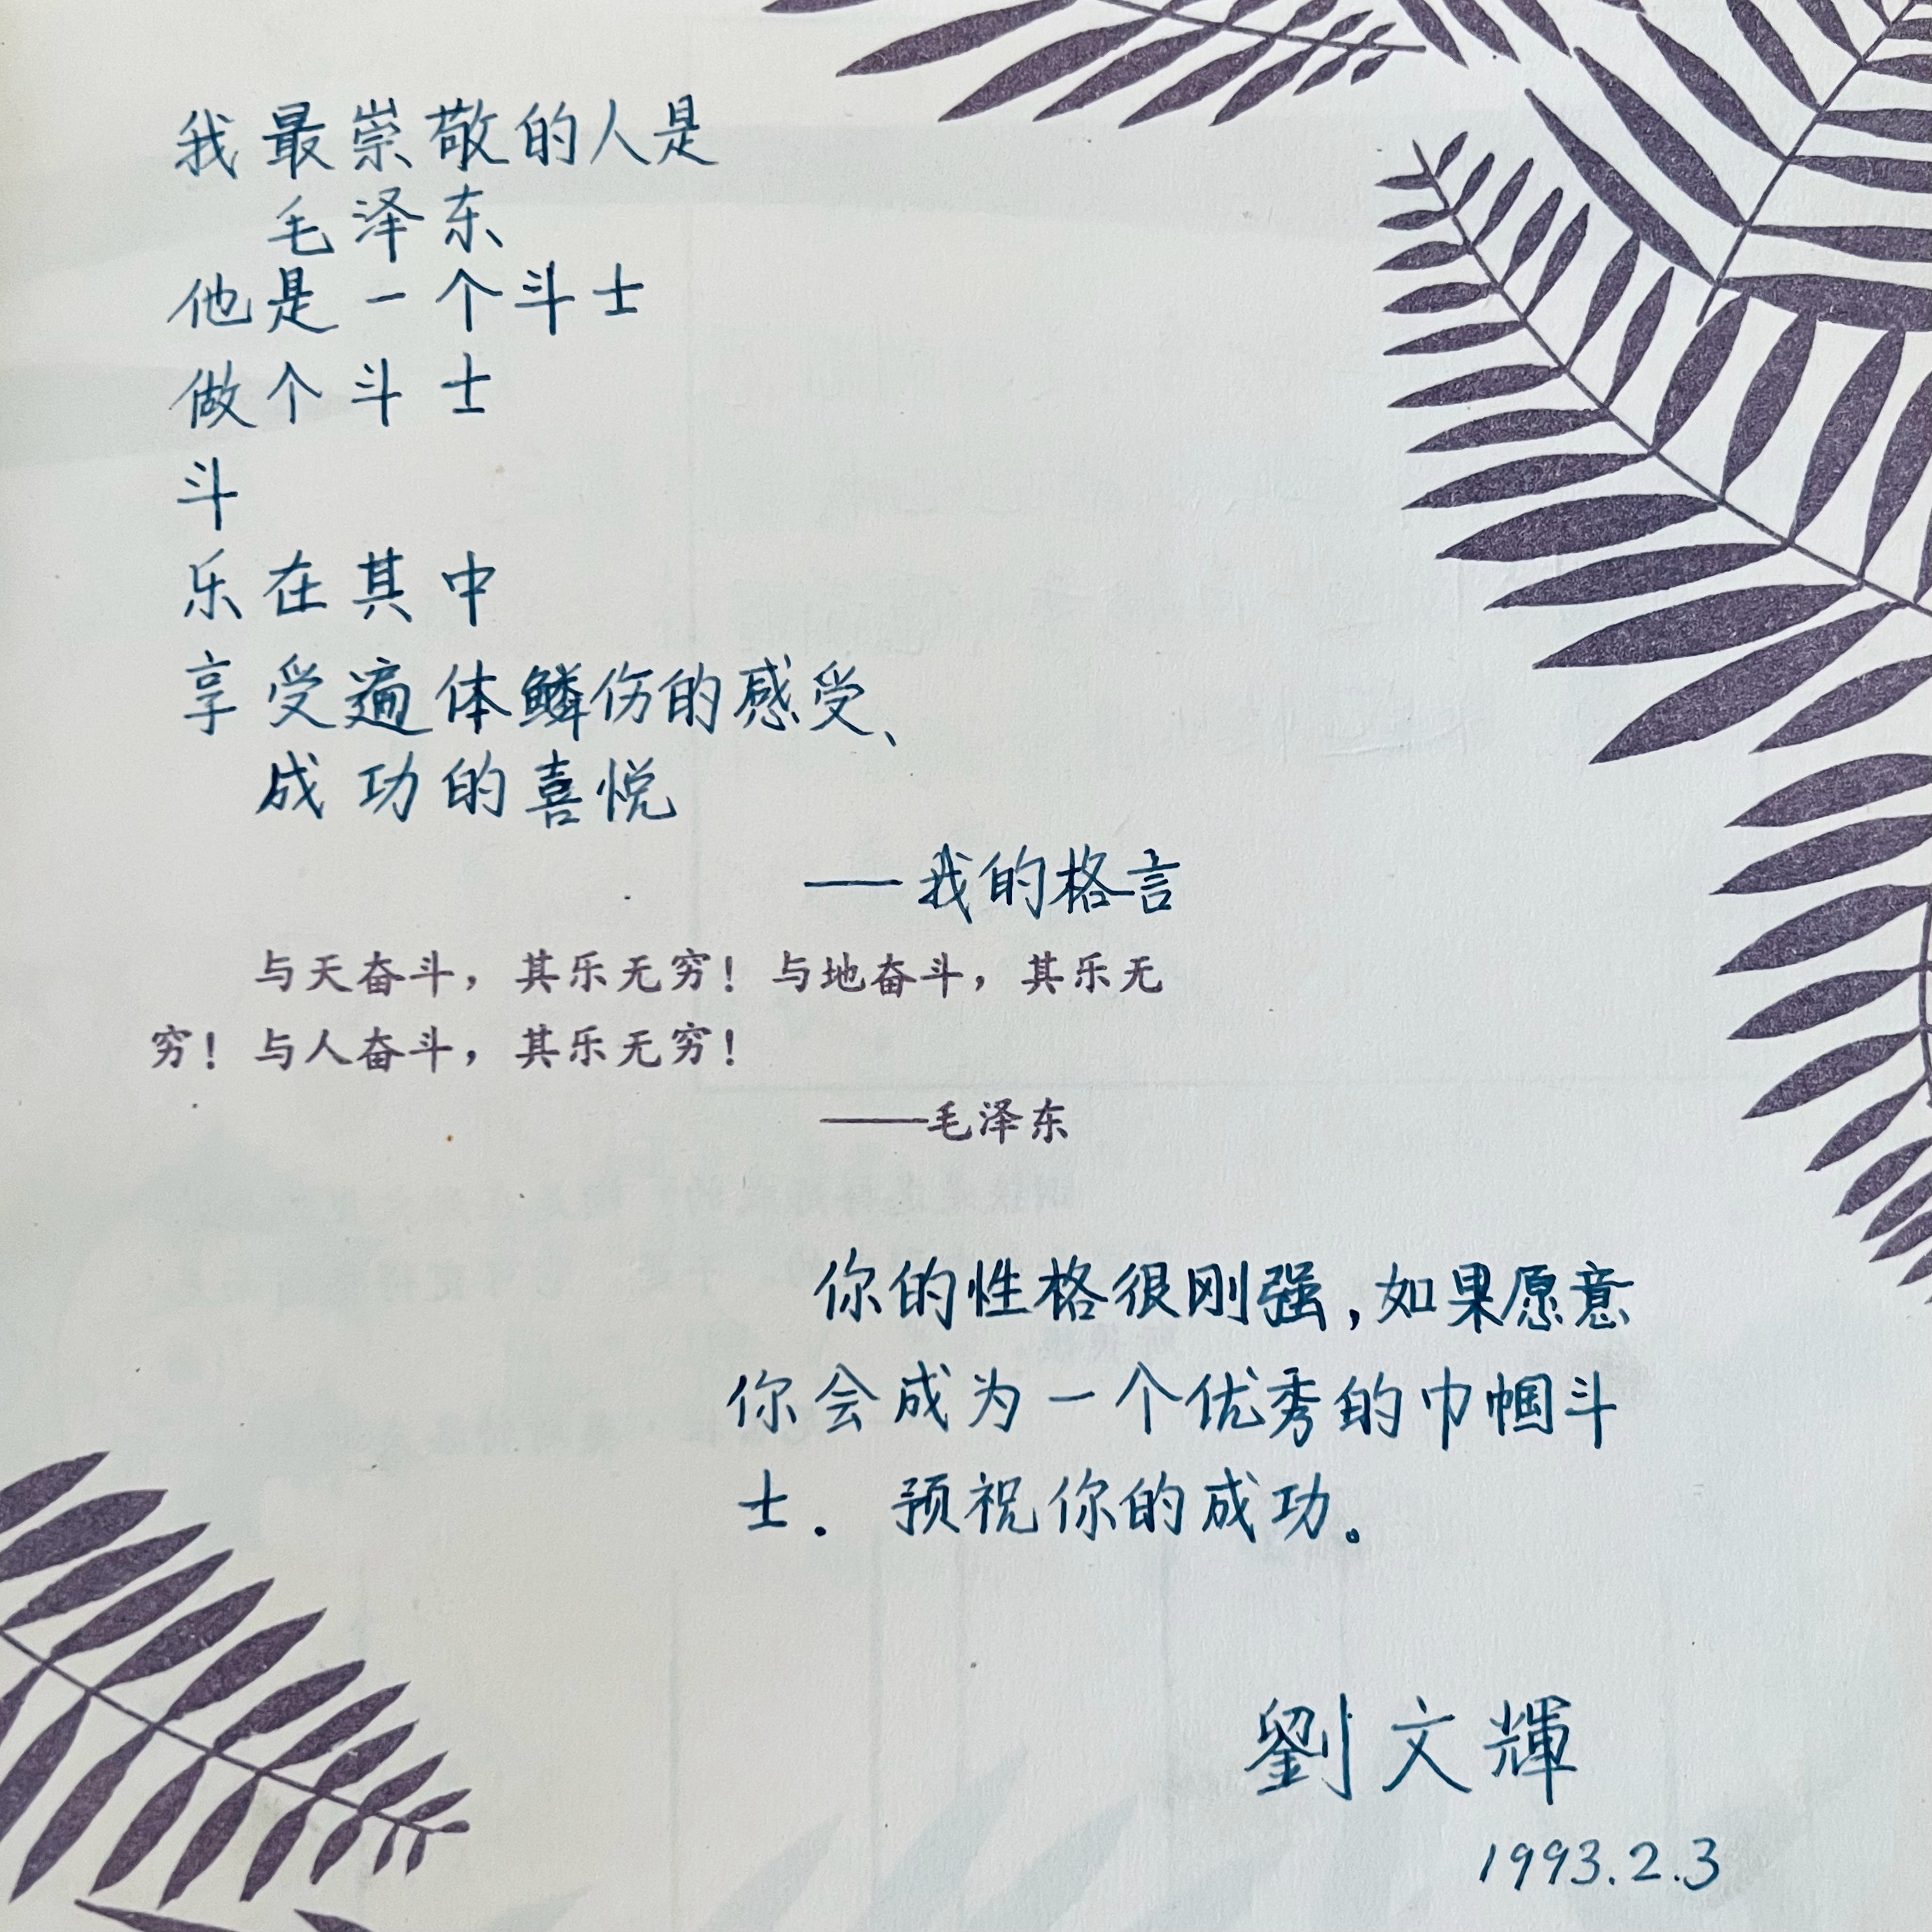 我最崇敬的人是
毛泽东
他是一个斗士
做个斗士
斗
乐在其中
享受遍体鳞伤的感受、
成功的喜悦
——我的格言
与天奋斗，其乐无穷！与地奋斗，其乐无
穷！与人奋斗，其乐无穷！
——毛泽东
你的性格很刚强，如果愿意
你会成为一个优秀的巾帼斗
士．预祝你的成功。
劉文輝
1993.2.3